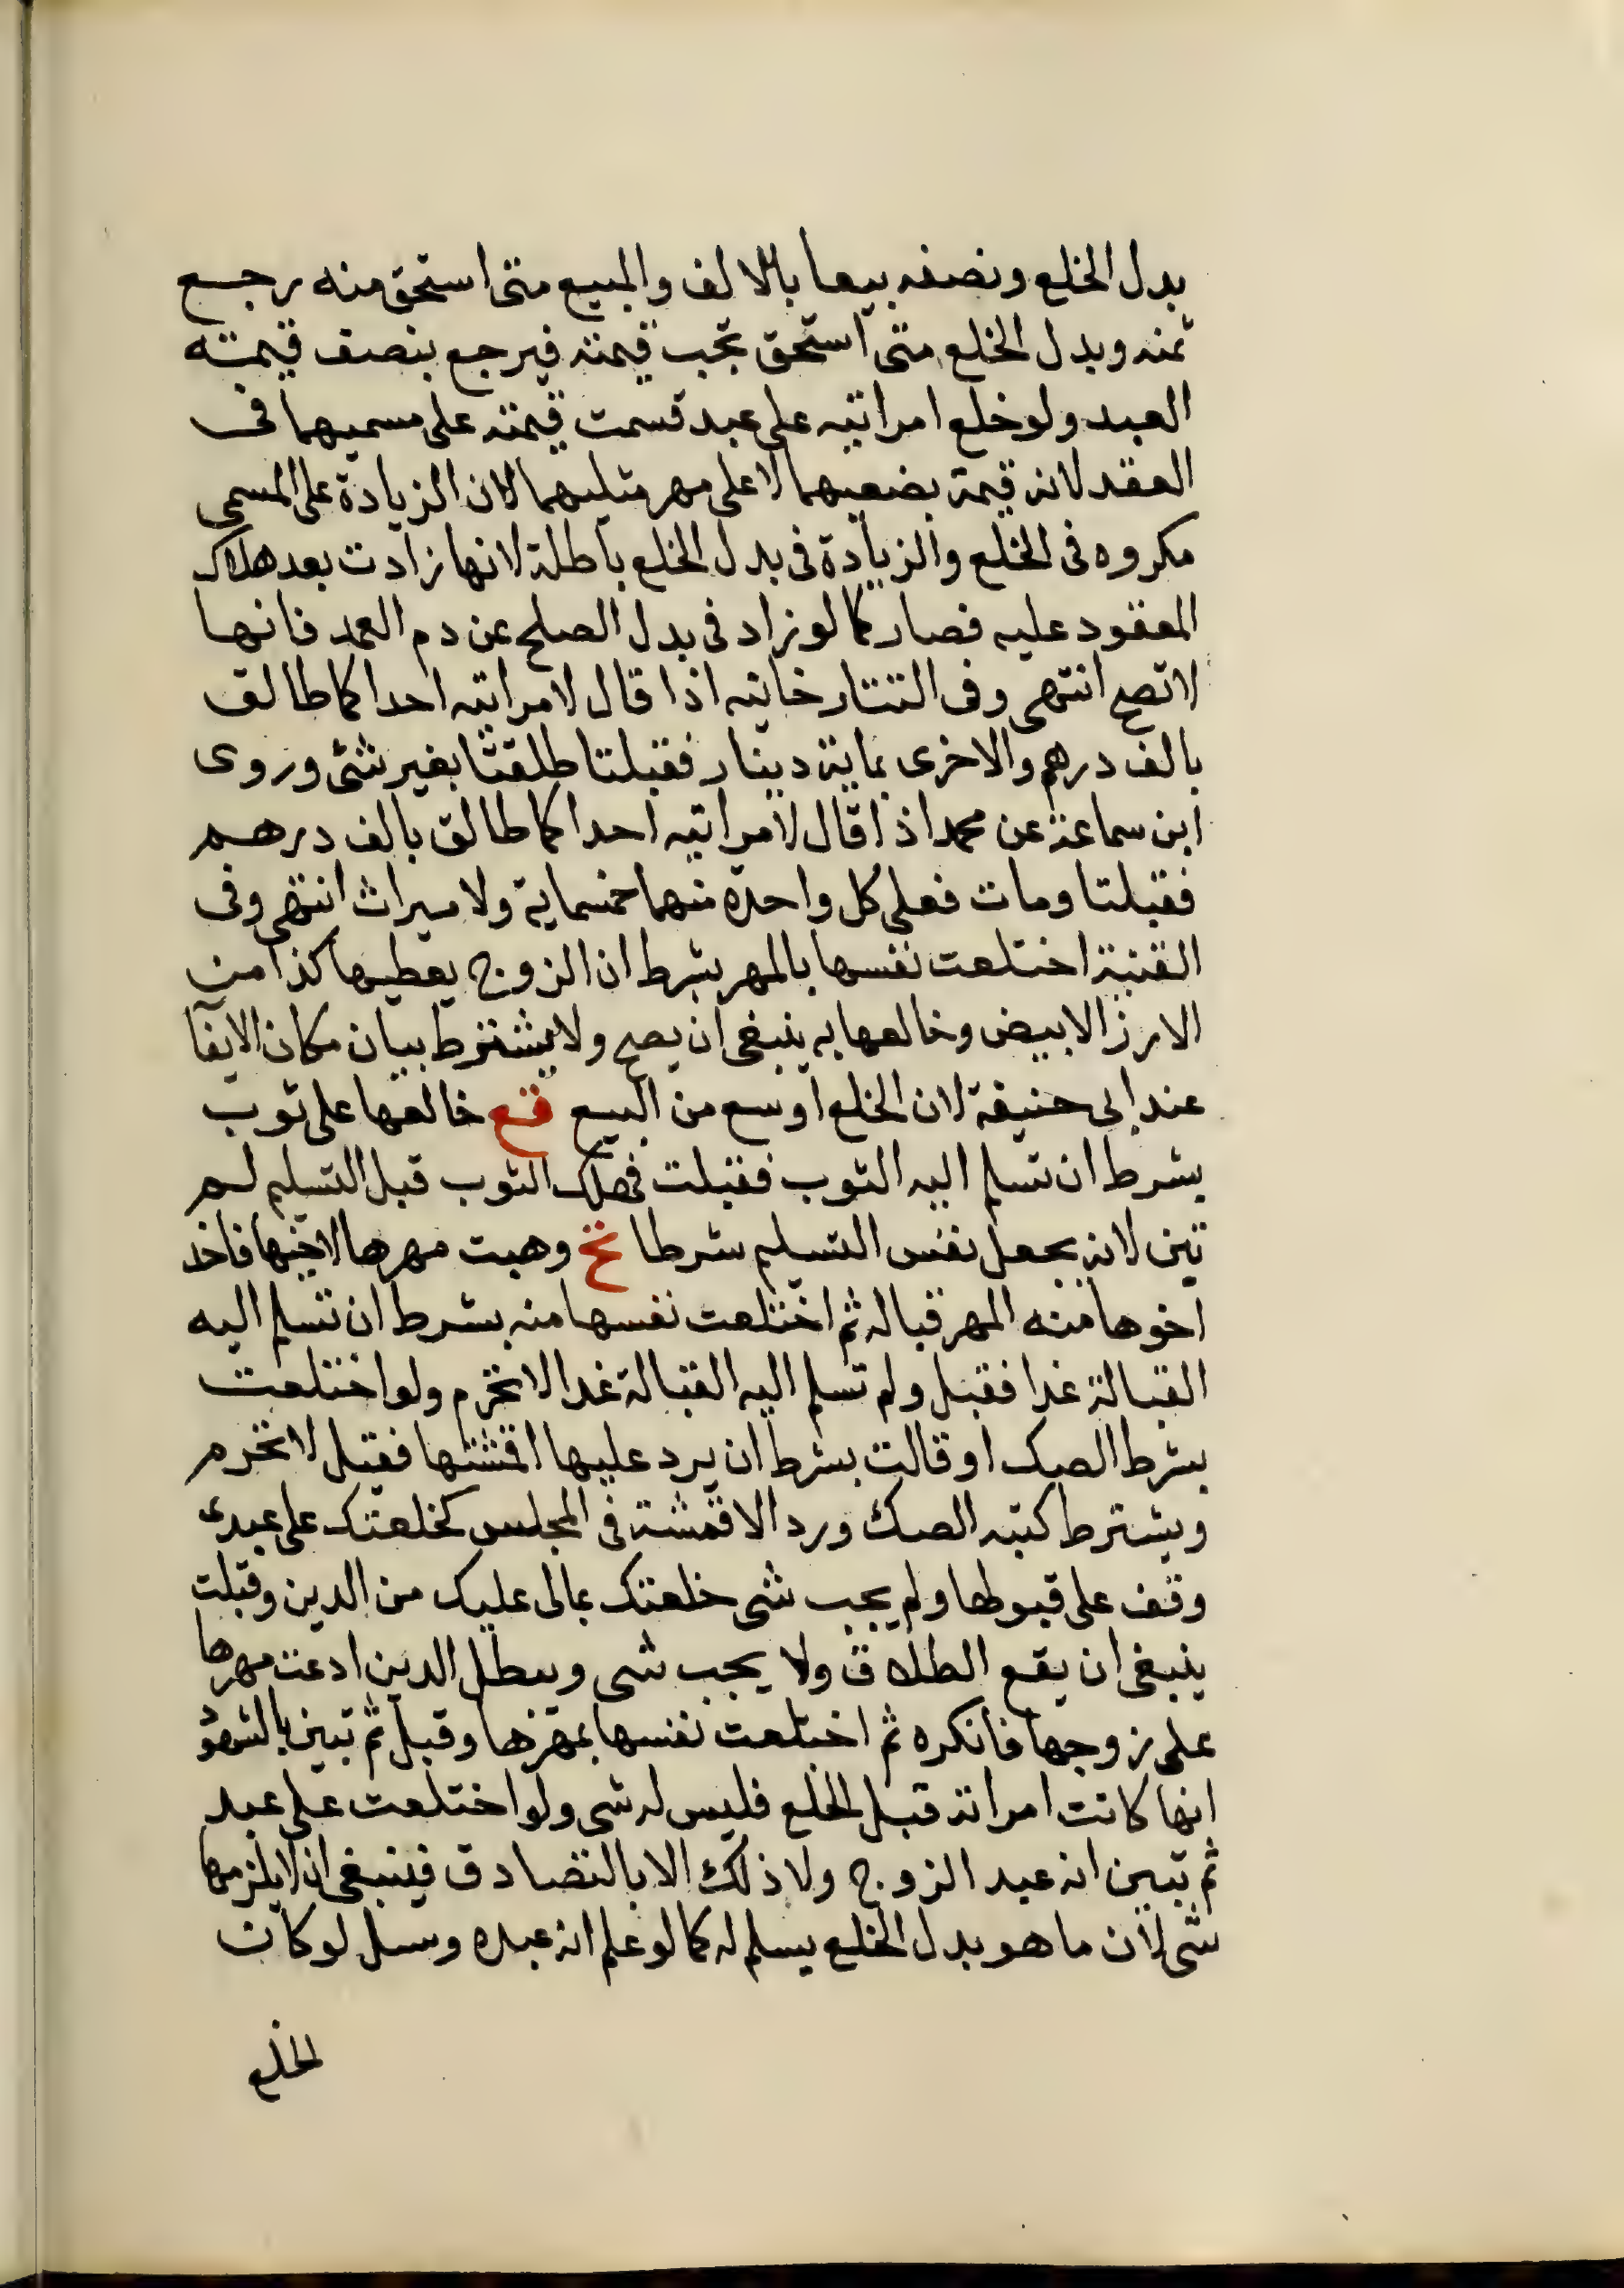 بدل الخلع ونصفه بيعا بالالف والمبيع متى استحق منه رجع
ثمنه وبدل الخلع متى استحق تجب قيمته فيرجع بنصف قيمته
العبد ولو خلع امراتيه على عبد قسمت قيمته على مسميهما في
العقد لانه قيمة بضعيهما لا على مهر مثليهما لان الزيادة على المسمى
مكروه في الخلع والزيادة في بدل الخلع باطلة لانها زادت بعد هلاك
المعقود عليه فصار كما لو زاد في بدل الصلح عن دم العمد فانها
لا تصح انتهى وفي التتارخانيه اذا قال لامراتيه احداكما طالق
بالف درهم والاخرى بماية دينار فقبلتا طلقتا بغير شئ وروى
ابن سماعة عن محمد اذا قال لامراتيه احداكما طالق بالف درهم
فقبلتا ومات فعلى كل واحدة منهما خمسماية ولا ميراث انتهى وفي
القنية اختلعت نفسها بالمهر بشرط ان الزوج يعطيها كذا من
الارز الابيض وخالعها به ينبغي ان يصح ولا يشترط بيان مكان الايفآ
عند ابي حنيفة لان الخلع اوسع من البيع قع خالعها على ثوب
بشرط ان تسلم اليه الثوب فقبلت فهلك الثوب قبل التسليم لم
تبن لانه يجعل نفس التسليم شرطا نخ وهبت مهرها لاخيها فاخذ
اخوها منه المهر قباله ثم اختلعت نفسها منه بشرط ان تسلم اليه
القبالة غدا فقبل ولم تسلم اليه القبالة غدا لا تحرم ولو اختلعت
بشرط الصك او قالت بشرط ان يرد عليها اقمشتها فقبل لا تحرم
ويشترط كتبه الصك ورد الاقمشة في المجلس كخلعتك على عبدى
وقف على قبولها ولم يجب شى خلعتك بمالى عليك من الدين وقبلت
ينبغى ان يقع الطلاق ولا يجب شى ويبطل الدين ادعت مهرها
على زوجها فانكره ثم اختلعت نفسها بمهرها وقبل ثم تبين بالشهود
انها كانت امراته قبل الخلع فليس له شى ولو اختلعت على عبد
ثم تبين انه عبد الزوج ولا ذلك الا بالتصادق فينبغى ان لا يلزمها
شى لان ما هو بدل الخلع يسلم له كما لو علم انه عبده وسىل لو كان
الخلع